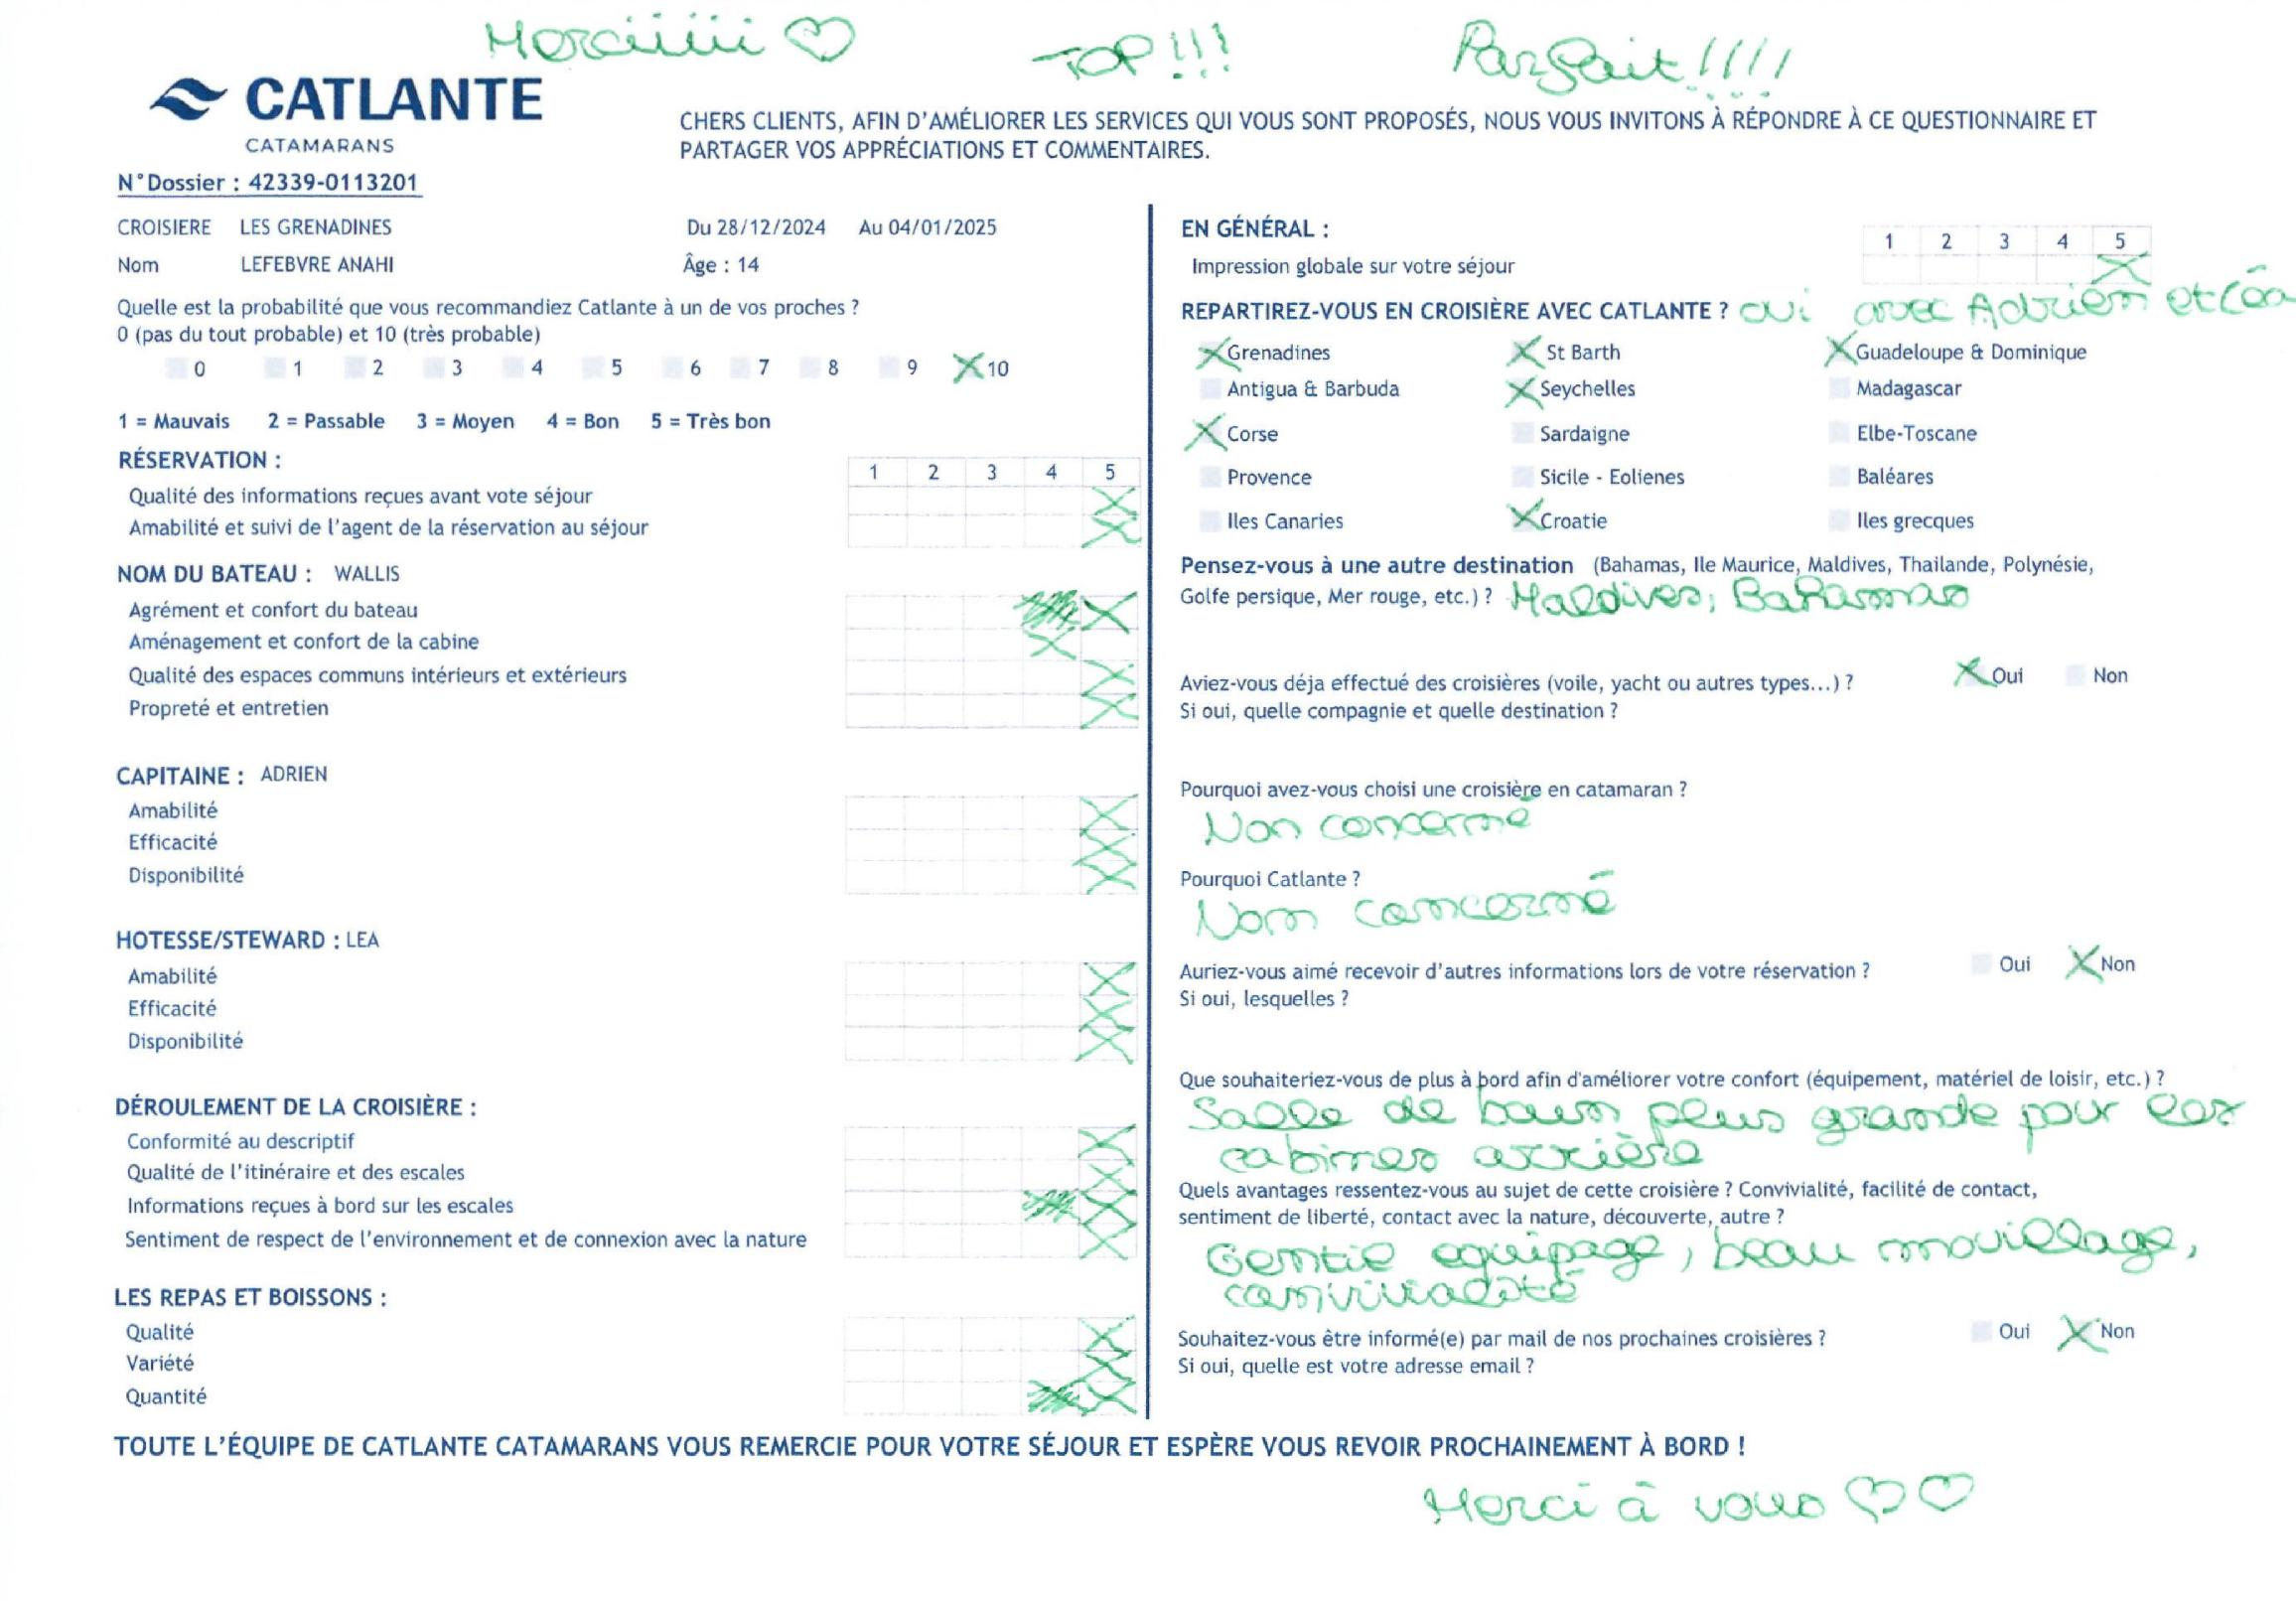 Merciiiii ♡ TOP !!! Parfait !!!!
CATLANTE
CATAMARANS
CHERS CLIENTS, AFIN D'AMÉLIORER LES SERVICES QUI VOUS SONT PROPOSÉS, NOUS VOUS INVITONS À RÉPONDRE À CE QUESTIONNAIRE ET
PARTAGER VOS APPRÉCIATIONS ET COMMENTAIRES.
N°Dossier : 42339-0113201
CROISIERE LES GRENADINES Du 28/12/2024 Au 04/01/2025
Nom LEFEBVRE ANAHI Âge : 14
Quelle est la probabilité que vous recommandiez Catlante à un de vos proches ?
0 (pas du tout probable) et 10 (très probable)
0 1 2 3 4 5 6 7 8 9 10
1 = Mauvais 2 = Passable 3 = Moyen 4 = Bon 5 = Très bon
RÉSERVATION :
1 2 3 4 5
Qualité des informations reçues avant vote séjour
Amabilité et suivi de l'agent de la réservation au séjour
NOM DU BATEAU : WALLIS
Agrément et confort du bateau
Aménagement et confort de la cabine
Qualité des espaces communs intérieurs et extérieurs
Propreté et entretien
CAPITAINE : ADRIEN
Amabilité
Efficacité
Disponibilité
HOTESSE/STEWARD : LEA
Amabilité
Efficacité
Disponibilité
DÉROULEMENT DE LA CROISIÈRE :
Conformité au descriptif
Qualité de l'itinéraire et des escales
Informations reçues à bord sur les escales
Sentiment de respect de l'environnement et de connexion avec la nature
LES REPAS ET BOISSONS :
Qualité
Variété
Quantité
EN GÉNÉRAL :
1 2 3 4 5
Impression globale sur votre séjour
REPARTIREZ-VOUS EN CROISIÈRE AVEC CATLANTE ? oui avec Adrien et Léa
Grenadines St Barth Guadeloupe & Dominique
Antigua & Barbuda Seychelles Madagascar
Corse Sardaigne Elbe-Toscane
Provence Sicile - Eolienes Baléares
Iles Canaries Croatie Iles grecques
Pensez-vous à une autre destination (Bahamas, Ile Maurice, Maldives, Thailande, Polynésie,
Golfe persique, Mer rouge, etc.) ? Maldives, Bahamas
Aviez-vous déja effectué des croisières (voile, yacht ou autres types...) ? Oui Non
Si oui, quelle compagnie et quelle destination ?
Pourquoi avez-vous choisi une croisière en catamaran ?
Non concerné
Pourquoi Catlante ?
Non concerné
Auriez-vous aimé recevoir d'autres informations lors de votre réservation ? Oui Non
Si oui, lesquelles ?
Que souhaiteriez-vous de plus à bord afin d'améliorer votre confort (équipement, matériel de loisir, etc.) ?
Salle de bain plus grande pour les
cabines arrière
Quels avantages ressentez-vous au sujet de cette croisière ? Convivialité, facilité de contact,
sentiment de liberté, contact avec la nature, découverte, autre ?
Gentil equipage, beau mouillage,
convivialité
Souhaitez-vous être informé(e) par mail de nos prochaines croisières ? Oui Non
Si oui, quelle est votre adresse email ?
TOUTE L'ÉQUIPE DE CATLANTE CATAMARANS VOUS REMERCIE POUR VOTRE SÉJOUR ET ESPÈRE VOUS REVOIR PROCHAINEMENT À BORD !
Merci à vous ♡♡